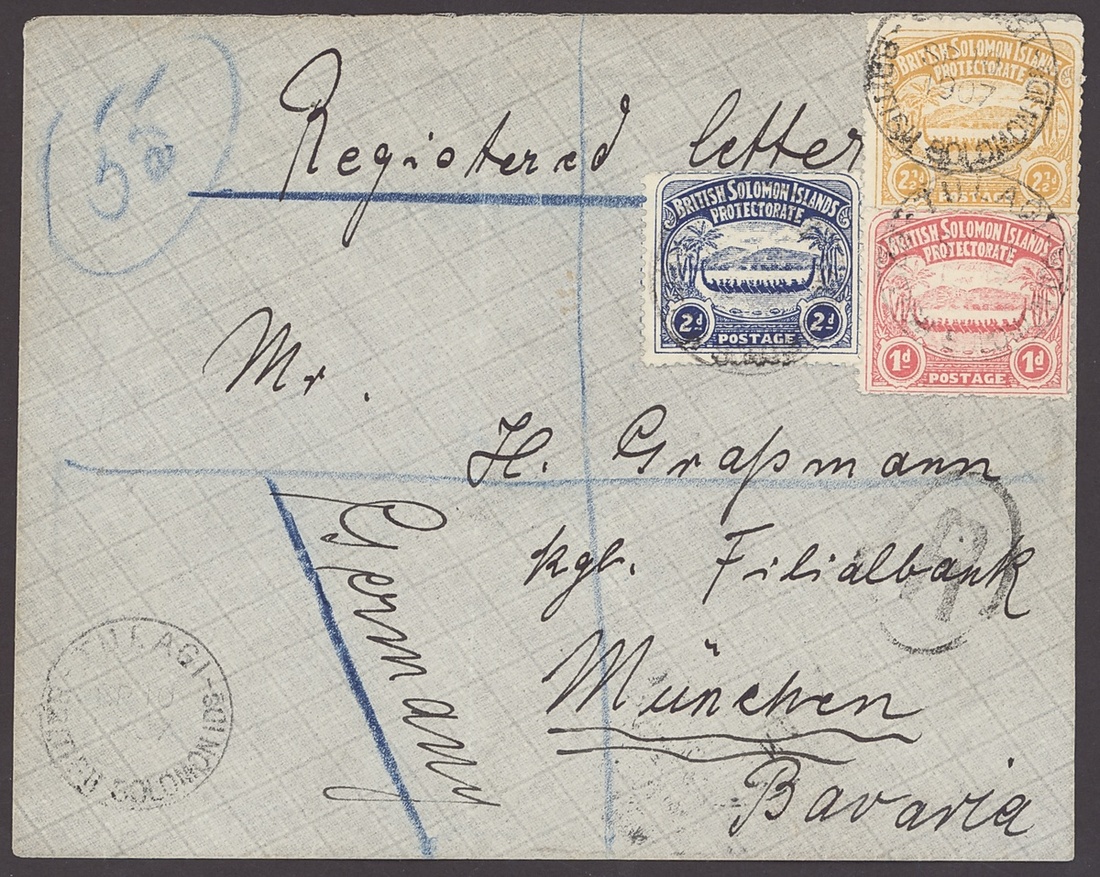 55
Registered letter
BRITISH SOLOMON ISLANDS
PROTECTORATE
1907
2½d 2½d
POSTAGE
BRITISH SOLOMON ISLANDS
PROTECTORATE
2d 2d
POSTAGE
BRITISH SOLOMON ISLANDS
PROTECTORATE
1d 1d
POSTAGE
BRITISH SOLOMON
TULAGI
Mr.
H. Graßmann
kgl. Filialbank
München
Bavaria
Germany
R
TULAGI-
BRITISH SOLOMON IS